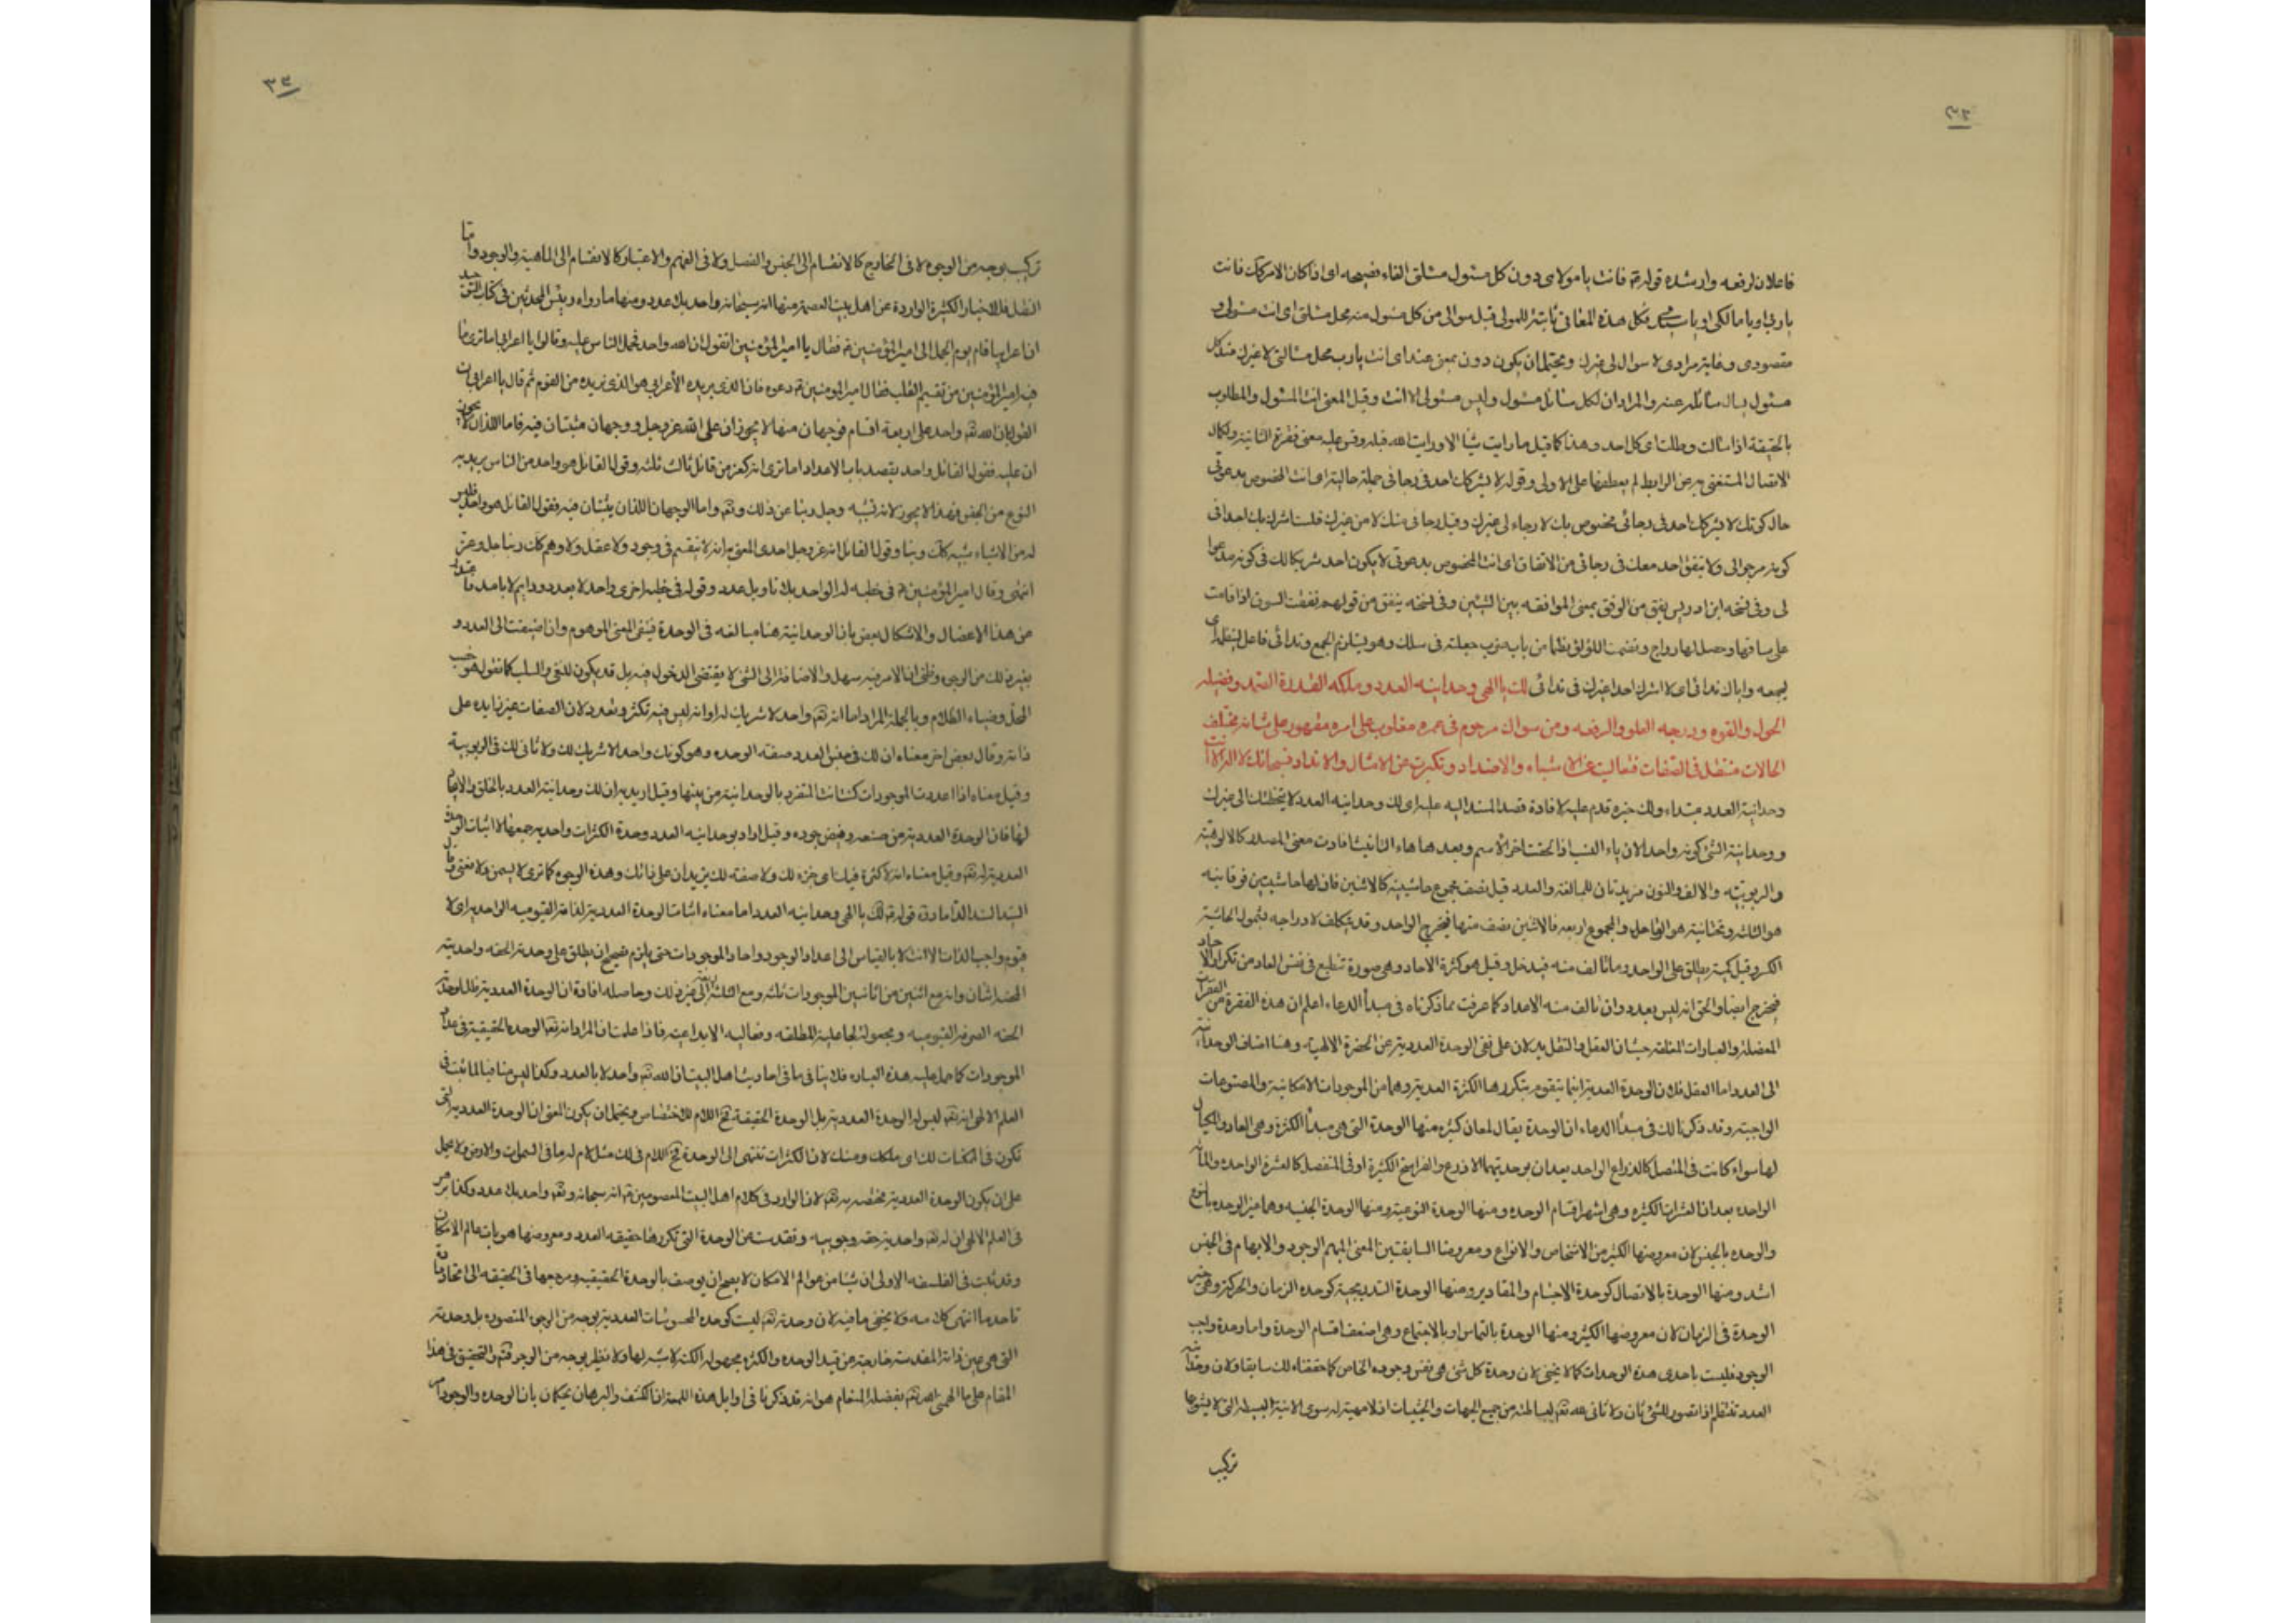 ٣٢
فاعلان لرفعه وارشده قوله ع فانت يا مولاى دون كل مسئول مسئلتى الفاء فصيحه اى اذا كان الامر كك فانت
يا ربى او يا مالكى او يا سيدى فكل هذه المعانى ثابتة للمولى قبل سوالى من كل مسئول منه محل مسئلتى اى انت مسئولى و
مقصودى وغاية مرادى لا سوال لى غيرك ويحتمل ان يكون دون بمعنى عند اى انت يا رب محل مسالتى لا غيرك عند كل
مسئول يسال سائله عنه والمراد ان لكل سائل مسئول وليس مسئولى الا انت وقيل المعنى انت المسئول والمطلوب
بالحقيقة اذا سالت وطلبت اى كل احد وهذا كما قيل ما رايت شيئا الا ورايت الله قبله وقس عليه معنى فقرة الثانية ولكمال
الاتصال المستغنى به عن الرابط لم يعطفها على الاولى وقوله لا يشركك احد فى رجائى جملة حالية اى انت المخصوص بدعوتى
حال كونك لا يشركك احد فى رجائى مخصوص بك لا رجاء لى غيرك وقيل رجائى منك لا من غيرك فلست اشرك بك احدا فى
كونه مرجوا لى ولا يتفق احد معك فى رجائى من الاتفاق اى انت المخصوص بدعوتى لا يكون احد شريكا لك فى كونه مدعوا
لى وفى نسخه ابن ادريس يفق من الوفق بمعنى الموافقه بين الشيئين وفى نسخه ينفق من قولهم نفقت السوق اذا قامت
على ساقها وحصل لها رواج ونضمت اللؤلؤ نظما من باب ضرب جعلته فى سلك وهو يستلزم الجمع وندائى فاعل لينظم اى
يجمعه واياك ندائى اى لا اشرك احدا غيرك فى ندائى لك يا الهى وحدانيه العدد وملكه القدرة الصمد وفضيله
الحول والقوه ودرجه العلو والرفعه ومن سواك مرحوم فى عمره مغلوب على امره مقهور على شانه مختلف
الحالات متنقل فى الصفات فتعاليت عن الاشباه والاضداد وتكبرت عن الامثال والانداد فسبحانك لا اله الا انت
وحدانية العدد مبتداء ولك خبره قدم عليه لافادة قصد المسند اليه عليه اى لك وحدانيه العدد لا يتخطاك الى غيرك
ووحدانية الشئ كونه واحدا لان ياء النسب اذا لحقت اخر الاسم وبعدها هاء التانيث افادت معنى المصدر كالالوهية
والربوبيه والالف والنون مزيدتان للمبالغة والعدد قيل نصف مجموع حاشيتيه كالاثنين فان لها حاشيتين فوقانيه
هو الثلثه وتحتانية هو الواحد والمجموع اربعه فالاثنين نصف منها فيخرج الواحد وقد يتكلف لادراجه بشمول الحاشية
الكسر وقيل كمية يطلق على الواحد وما تالف منه فيدخل وقيل هو كثرة الاحاد وهى صورة تنطبع فى نفس العاد من تكرار الاحاد
فيخرج ايضا والحق انه ليس بعدد وان تالف منه الاعداد كما عرفت مما ذكرناه فى مبدأ الدعاء اعلم ان هذه الفقرة من الفقرات
المعضلة والعبارات المغلقة حيث ان العقل والنقل يدلان على نفى الوحدة العددية عن الحضرة الالهية وهنا اضاف الوحدانية
الى العدد اما العقل فلان الوحدة العددية انما يتقوم بتكررها الكثرة العددية وهما من الموجودات الامكانية والمصنوعات
الواجبيه وقد ذكرنا لك فى مبدأ الدعاء ان الوحدة يقال لمعان كثيره منها الوحدة التى هى مبدأ الكثرة وهى العاد والمكيال
لها سواء كانت فى المتصل كالذراع الواحد يعدان بوحدتيهما الاذرع والفراسخ الكثيرة او فى المنفصل كالعشرة الواحدة والمائة
الواحده يعدان العشرات الكثيره وهى اشهر اقسام الوحده ومنها الوحدة النوعية ومنها الوحدة الجنسيه وهما غير الوحده بالنوع
والوحده بالجنس لان معروضها الكثير من الاشخاص والانواع ومعروضا السابقتين المعنى المبهم الوجود والابهام فى الجنس
اشد ومنها الوحدة بالاتصال كوحدة الاجسام والمقادير ومنها الوحدة التدريجية كوحده الزمان والحركة وهى غير
الوحدة فى الزمان لان معروضها الكثير ومنها الوحدة بالتماس او بالاجتماع وهى اضعف اقسام الوحدة واما وحدة واجب
الوجود فليست باحدى هذه الوحدات كما لا يخفى لان وحدة كل شئ هى نفس وجوده الخاص كما حققناه لك سابقا ولان وحدانية
العدد تنتظم اذا تصور للشئ ثان ولا ثانى له تعم لبساطته من جميع الجهات والحيثيات اذ لا مهية له سوى الانية البسيطه التى لا يشوبها
تركيب
٣٣
تركيب بوجه من الوجوه لا فى الخارج كالانقسام الى الجنس والفصل ولا فى الفهم والاعتبار كالانقسام الى الماهية والوجود واما
النقل فللاخبار الكثيرة الواردة عن اهل بيت العصمة منها انه سبحانه واحد بلا عدد ومنها ما رواه رئيس المحدثين فى كتاب التوحيد
ان اعرابيا قام يوم الجمل الى امير المؤمنين ع فقال يا امير المؤمنين اتقول ان الله واحد فحمل الناس عليه وقالوا يا اعرابى اما ترى ما
فيه امير المؤمنين من تقسيم القلب فقال امير المؤمنين ع دعوه فان الذى يريده الأعرابى هو الذى نريده من القوم ثم قال يا اعرابى ان
القول بان الله تعم واحد على اربعة اقسام فوجهان منها لا يجوزان على الله عز وجل ووجهان مثبتان فيه فاما اللذان لا يجوز
ان عليه فقول القائل واحد يقصد باب الاعداد اما ترى انه كفر من قال ثالث ثلثه وقول القائل هو واحد من الناس يريد به
النوع من الجنس فهذا لا يجوز لانه تشبيه وجل ربنا عن ذلك وتعم واما الوجهان اللذان يثبتان فيه فقول القائل هو واحد ليس
له من الاشياء شبيه كك ربنا وقول القائل انه عز وجل احدى المعنى به انه لا ينقسم فى وجود ولا عقل ولا وهم كك ربنا جل وعز
انتهى وقال امير المؤمنين ع فى خطبه له الواحد بلا تاويل عدد وقوله فى خطبه اخرى واحد لا بعدد ودائم لا بامد
من هذا الاعضال والاشكال بعض بان الوحدانية هنا مبالغه فى الوحدة فينفى المعنى الموهوم وان اضيفت الى العدد و
بغير ذلك من الوجوه وظنى ان الامر فيه سهل والاضافة الى الشئ لا يقتضى الدخول فيه بل قد يكون للنفى والسلب كما تقول هو
المحل وضياء الظلام وبالجملة المراد اما انه تعم واحد لا شريك له او انه ليس فيه تكثر وتعدد لان الصفات غير زايده على
ذاته وقال بعض اخر معناه ان لك من جنس العدد صفه الوحده وهو كونك واحد لا شريك لك ولا ثانى لك فى الربوبية
وقيل معناه اذا عددت الموجودات كنت انت المتفرد بالوحدانية من بينها وقيل اريد به ان لك وحدانية العدد بالخلق والايجاد
لها فان الوحدة العددية من صنعه وفيض جوده وقيل اراد بوحدانيه العدد وحدة الكثرات واحدية جمعها لا اثبات الوحدة
العددية له تعم وقيل معناه انه لا كثرة فيك اى جزء لك ولا صفه لك يزيدان على ذاتك وهذه الوجوه كما ترى لا يسمن ولا يغنى وقال
السيد السند الداماد فى قوله ع لك يا الهى وحدانيه العدد اما معناه اثبات الوحدة العددية لذاته القيوميه الواحديه اى لا
قيوم واجب الذات الا انت لا بالقياس الى اعداد الوجود واحاد الموجودات حتى يلزم تصحيح ان يطلق على وحدته الحقه واحدية
العدد اثنان وانه مع اثنين من اثانين الموجودات ثلثه ومع الثلثه اربعة الى غير ذلك وحاصله افادة ان الوحدة العددية ظل لوحدته
الحقه الصرفه القيوميه ومجعولة لجاعليته المطلقه وفعاليه الابداعيه فاذا علمت ان المراد انه تعم الوحدة الحقيقية فى عداد
الموجودات كما حمل عليه هذه العباره فلا ينافى ما فى احاديث اهل البيت ان الله تعم واحد لا بالعدد وكذا ليس منافيا لما ثبت فى
العلم الالهى انه تعم ليس له الوحدة العددية بل الوحدة الحقيقية فح اللام للاختصاص ويحتمل ان يكون المعنى ان الوحدة العددية التى
تكون فى الممكنات لك اى ملكك ومنك لان الكثرات تنتهى الى الوحدة فح اللام فى لك مثل لام له ما فى السموات والارض ولا يحمل
على ان يكون الوحدة العددية مختصه به تعم لان الوارد فى كلام اهل البيت المعصومين ع انه سبحانه وتعم واحد بلا عدد وكذا برهن
فى العلم الالهى ان له تعم واحدية حقه وجوبيه وتقدست عن الوحدة التى تكررها حقيقه العدد ومعروضها هويات عالم الامكان
وقد ثبت فى الفلسفه الاولى ان شيئا من عوالم الامكان لا يصح ان يوصف بالوحدة الحقيقيه ومرجعها فى الحقيقه الى اتحاد ما
تاحد ما انتهى كلامه ولا يخفى ما فيه لان وحدته تعم ليست كوحده المحسوسات العددية بوجه من الوجوه المتصوره بل وحدته
التى هى عين ذاته المقدسة خارجة عن قيد الوحده والكثره مجهولة الكنه لا شبه لها ولا نظير بوجه من الوجوه فتم والتحقيق فى هذا
المقام على ما الهمنى الله تعم بفضله المنعام هو انه قد ذكرنا فى اوايل هذه اللمعة ان الكشف والبرهان يحكمان بان الوحده والوجود